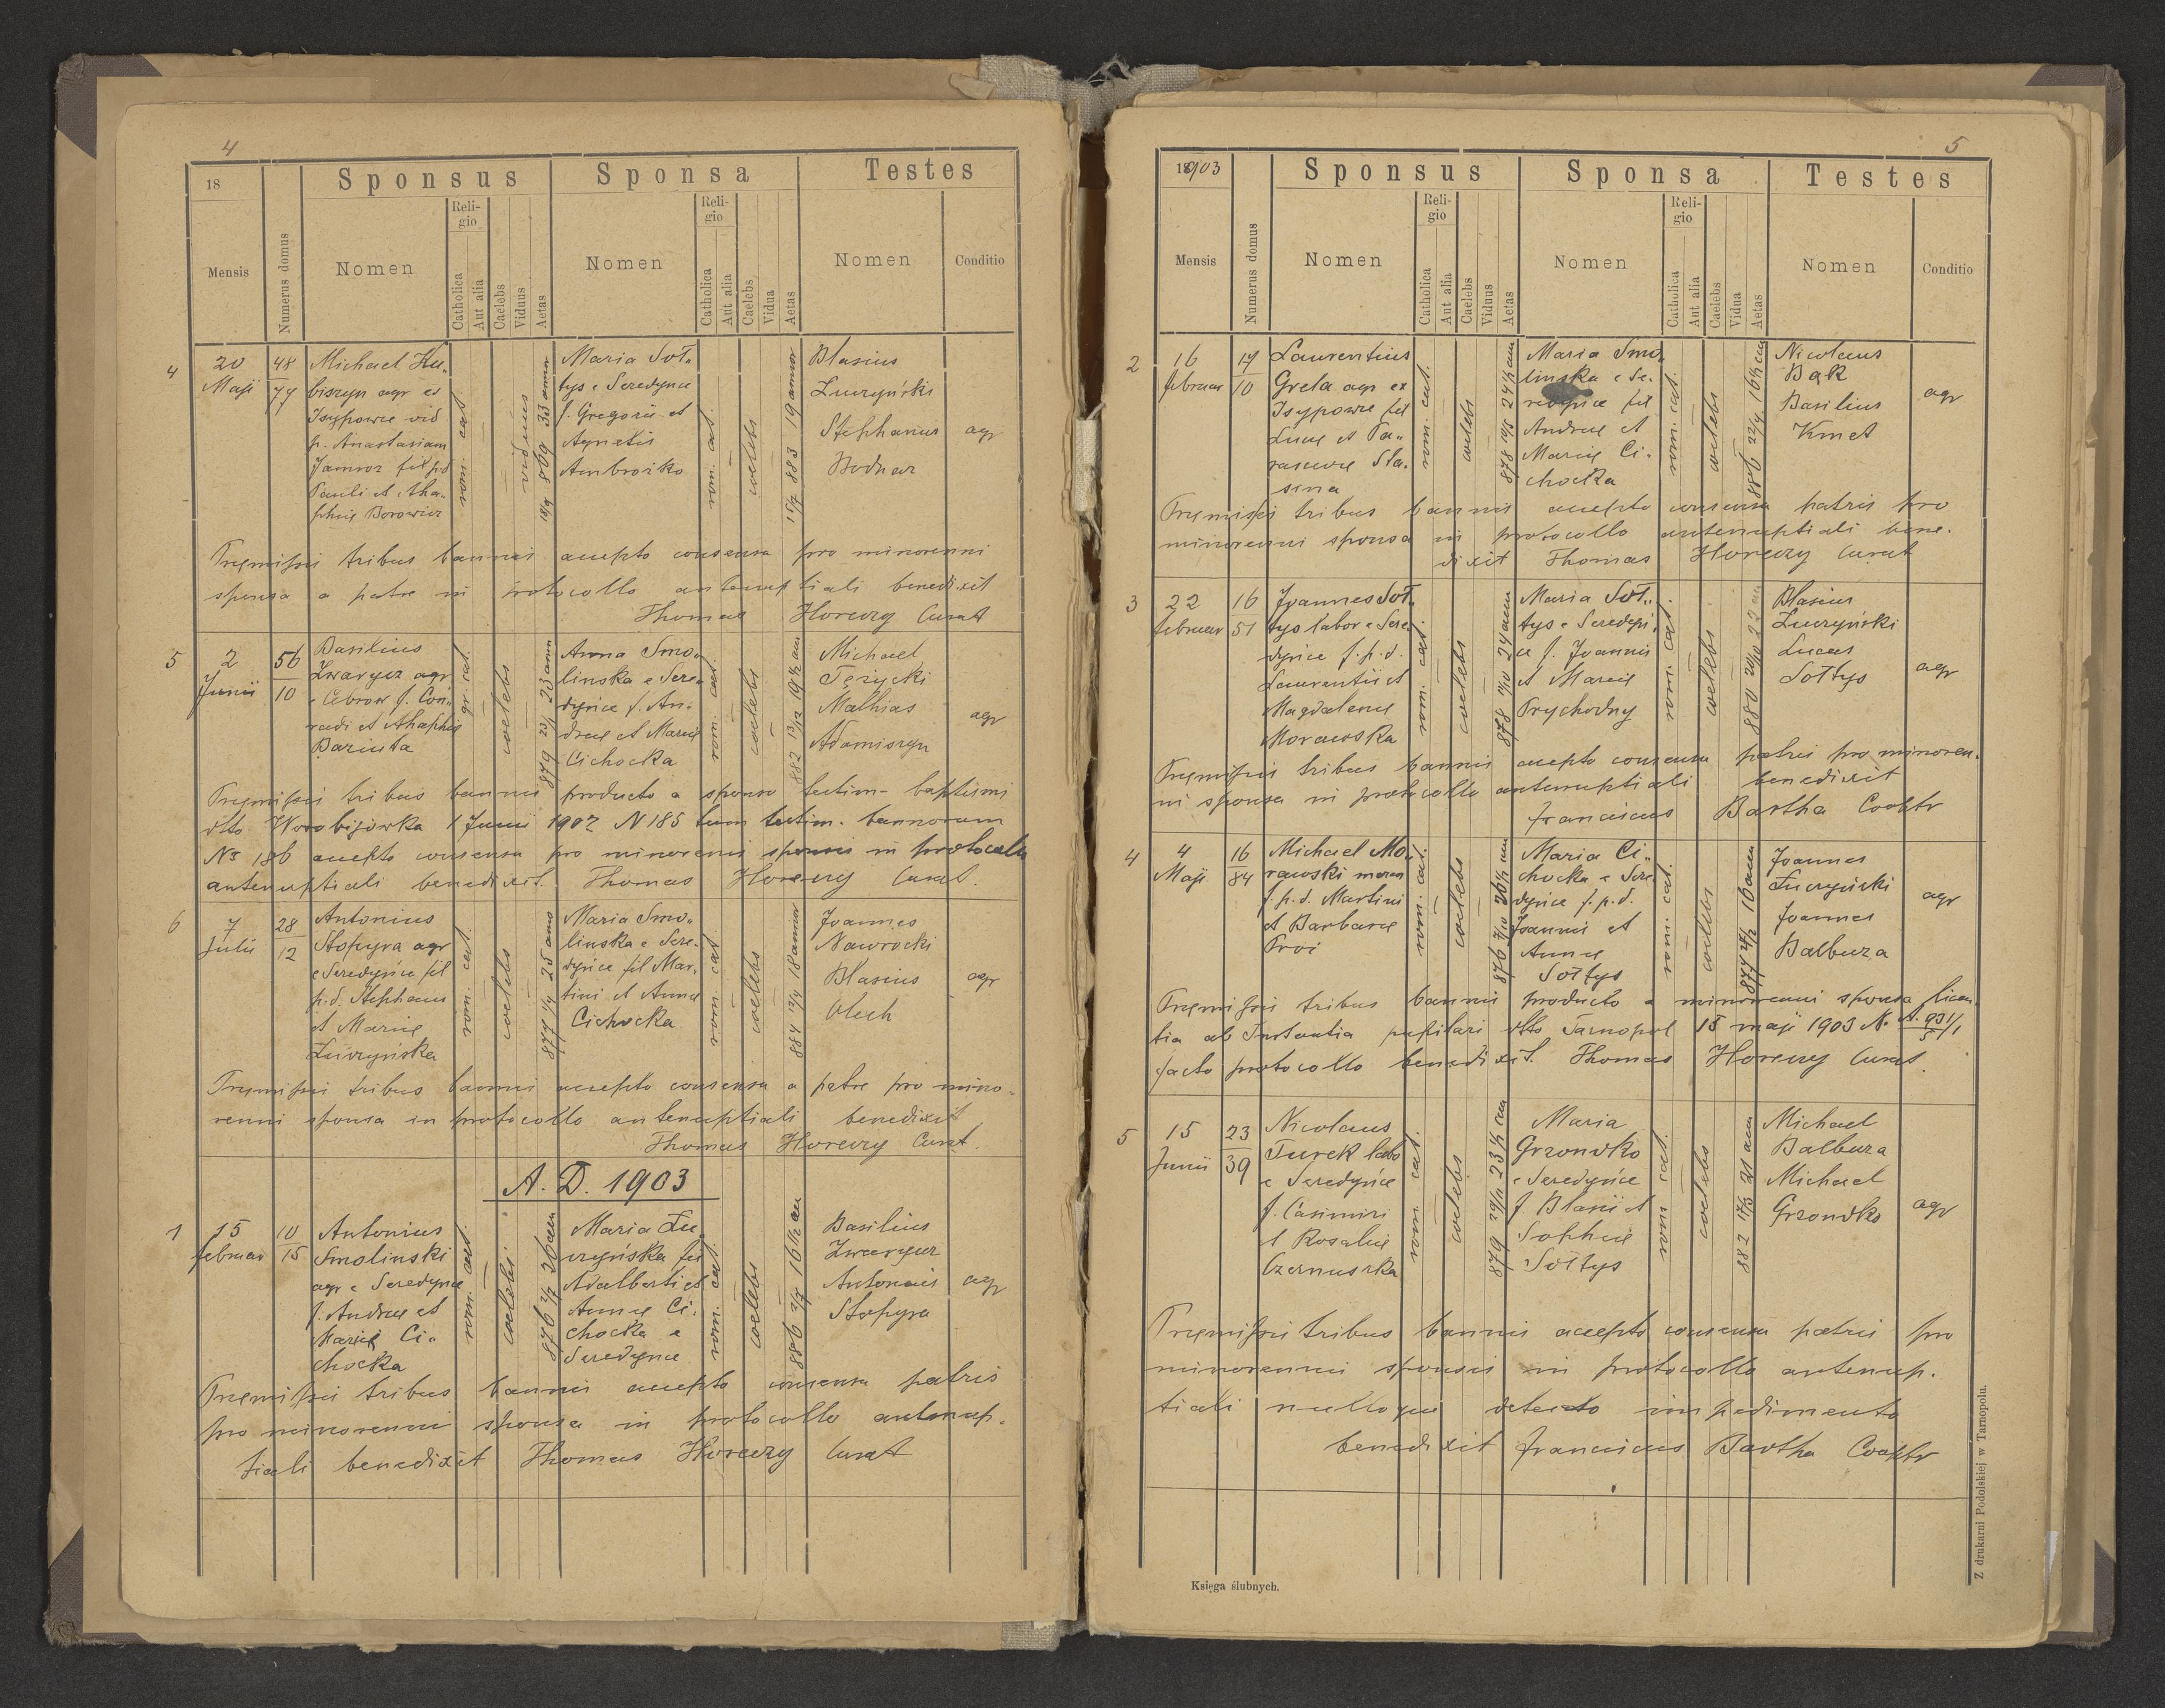 4
18
Sponsus
Sponsa
Testes
Mensis
Numerus domus
Nomen
Religio
Catholica
Aut alia
Caelebs
Viduus
Aetas
Nomen
Religio
Catholica
Aut alia
Caelebs
Vidua
Aetas
Nomen
Conditio
4
20
Maji
48
77
Michael Lu„
biszyn agr ex
Isypowce vid
p. Anastasiam
Jamroz fil p.d
Pauli et Aha„
phiæ Borowicz
rom. cat
viduus
18/9 869 33 annor
Maria Soł„
tys e Seredynce
f. Gregorii et
Agnetis
Ambrożko
rom. cat.
coelebs
15/7 883 19 annor
Blasius
Łuczyński
Stephanus
Bodnar
agr
Præmissis tribus bannis accepto consensu pro minorenni
sponsa a patre in protocollo antenuptiali benedixit
Thomas Horeczy Curat
5
2
Junii
56
10
Basilius
Zwarycz agr
e Cebrow f. Con„
radi et Ahaphiæ
Baziuta
gr. cat.
coelebs
Anna Smo„
linska e Sere„
dyńce f. An„
dreæ et Mariæ
Cichocka
rom. cat.
coelebs
Michael
Tęzycki
Mathias
Adamiszyn
agr
Præmissis tribus bannis producto a sponso testim- baptismi
dtto Worobijówka 1 Junii 1902 N 185 tum testim. bannorum
No 186 accepto consensu pro minorenni sponsa in protocollo
antenuptiali benedixit. Thomas Horeczy Curat.
6
7
Julii
28
12
Antonius
Stopyra agr
e Seredyńce fil
p.d. Stephani
et Mariæ
Łuczyńska
rom. cat.
coelebs
Maria Smo„
linska e Sere„
dyńce fil Mar„
tini et Annæ
Cichocka
rom. cat.
coelebs
Joannes
Nawrocki
Blasius
Olech
agr
Præmissis tribus bannis accepto consensu a patre pro mino-
renni sponsa in protocollo antenuptiali benedixit
Thomas Horeczy Curat.
A. D. 1903
1
15
februar
10
15
Antonius
Smolinski
agr e Seredynce
f. Andreæ et
Mariæ Ci„
chocka
rom. cat.
coelebs
Maria Łu„
czyńska fil
Adalberti et
Annæ Ci„
chocka e
Seredynce
rom. cat.
coelebs
Basilius
Zwarycz
Antonius
Stopyra
agr
Præmissis tribus bannis accepto consensu patris
pro minorenni sponsa in protocollo antenup-
tiali benedixit Thomas Horeczy Curat
5
1903
Sponsus
Sponsa
Testes
Mensis
Numerus domus
Nomen
Religio
Catholica
Aut alia
Caelebs
Viduus
Aetas
Nomen
Religio
Catholica
Aut alia
Caelebs
Vidua
Aetas
Nomen
Conditio
2
16
februar
17
10
Laurentius
Greta agr ex
Isypowce fil
Lucæ et Pa„
rasceviæ Sta„
sina
rom. cat.
coelebs
Maria Smo„
linska e Se„
redyńce fil
Andreæ et
Mariæ Ci„
chocka
rom. cat.
coelebs
Nicolaus
Bąk
Basilius
Kmet
agr
Præmissis tribus bannis accepto consensu patris pro
minorenni sponsa in protocollo antenuptiali bene-
dixit Thomas Horeczy Curat
3
22
februar
16
51
Joannes Soł„
tys labor e Sere„
dyńce f. p. d.
Laurentii et
Magdalenæ
Morawska
rom. cat.
coelebs
Maria Soł„
tys e Seredyń„
ce f. Joannis
et Mariæ
Prychodny
rom. cat.
coelebs
Blasius
Łuczyński
Lucas
Sołtys
agr
Præmissis tribus bannis accepto consensu patris pro minoren-
ni sponsa in protocollo antenuptiali benedixit
Franciscus Bartha Cooptr
4
4
Maji
16
84
Michael Mo„
rawski
f. p. d. Martini
et Barbaræ
Proć
rom. cat.
coelebs
Maria Ci„
chocka e Sere„
dyńce f. p. d.
Joannis et
Annæ
Sołtys
rom. cat.
coelebs
Joannes
Łuczyński
Joannes
Balbuza
agr
Præmissis tribus bannis producto a minorenni sponsa licen„
tia ab Instantia pupilari dtto Tarnopol 15 maji 1903
facto protocollo benedixit. Thomas Horeczy Curat.
5
15
Junii
23
39
Nicolaus
Turek labo
e Seredyńce
f. Casimiri
et Rosaliæ
Czernuszka
rom cat.
coelebs
Maria
Grzondko
e Seredyńce
f. Blasii et
Sophiæ
Sołtys
rom cat.
coelebs
Michael
Balbuza
Michael
Grzondko
agr
Præmissis tribus bannis accepto consensu patris pro
minorenni sponsis in protocollo antenup-
tiali nulloque detecto impedimento
benedixit Franciscus Bartha Cooptr
Księga ślubnych.
Z drukarni Podolskiej w Tarnopolu.